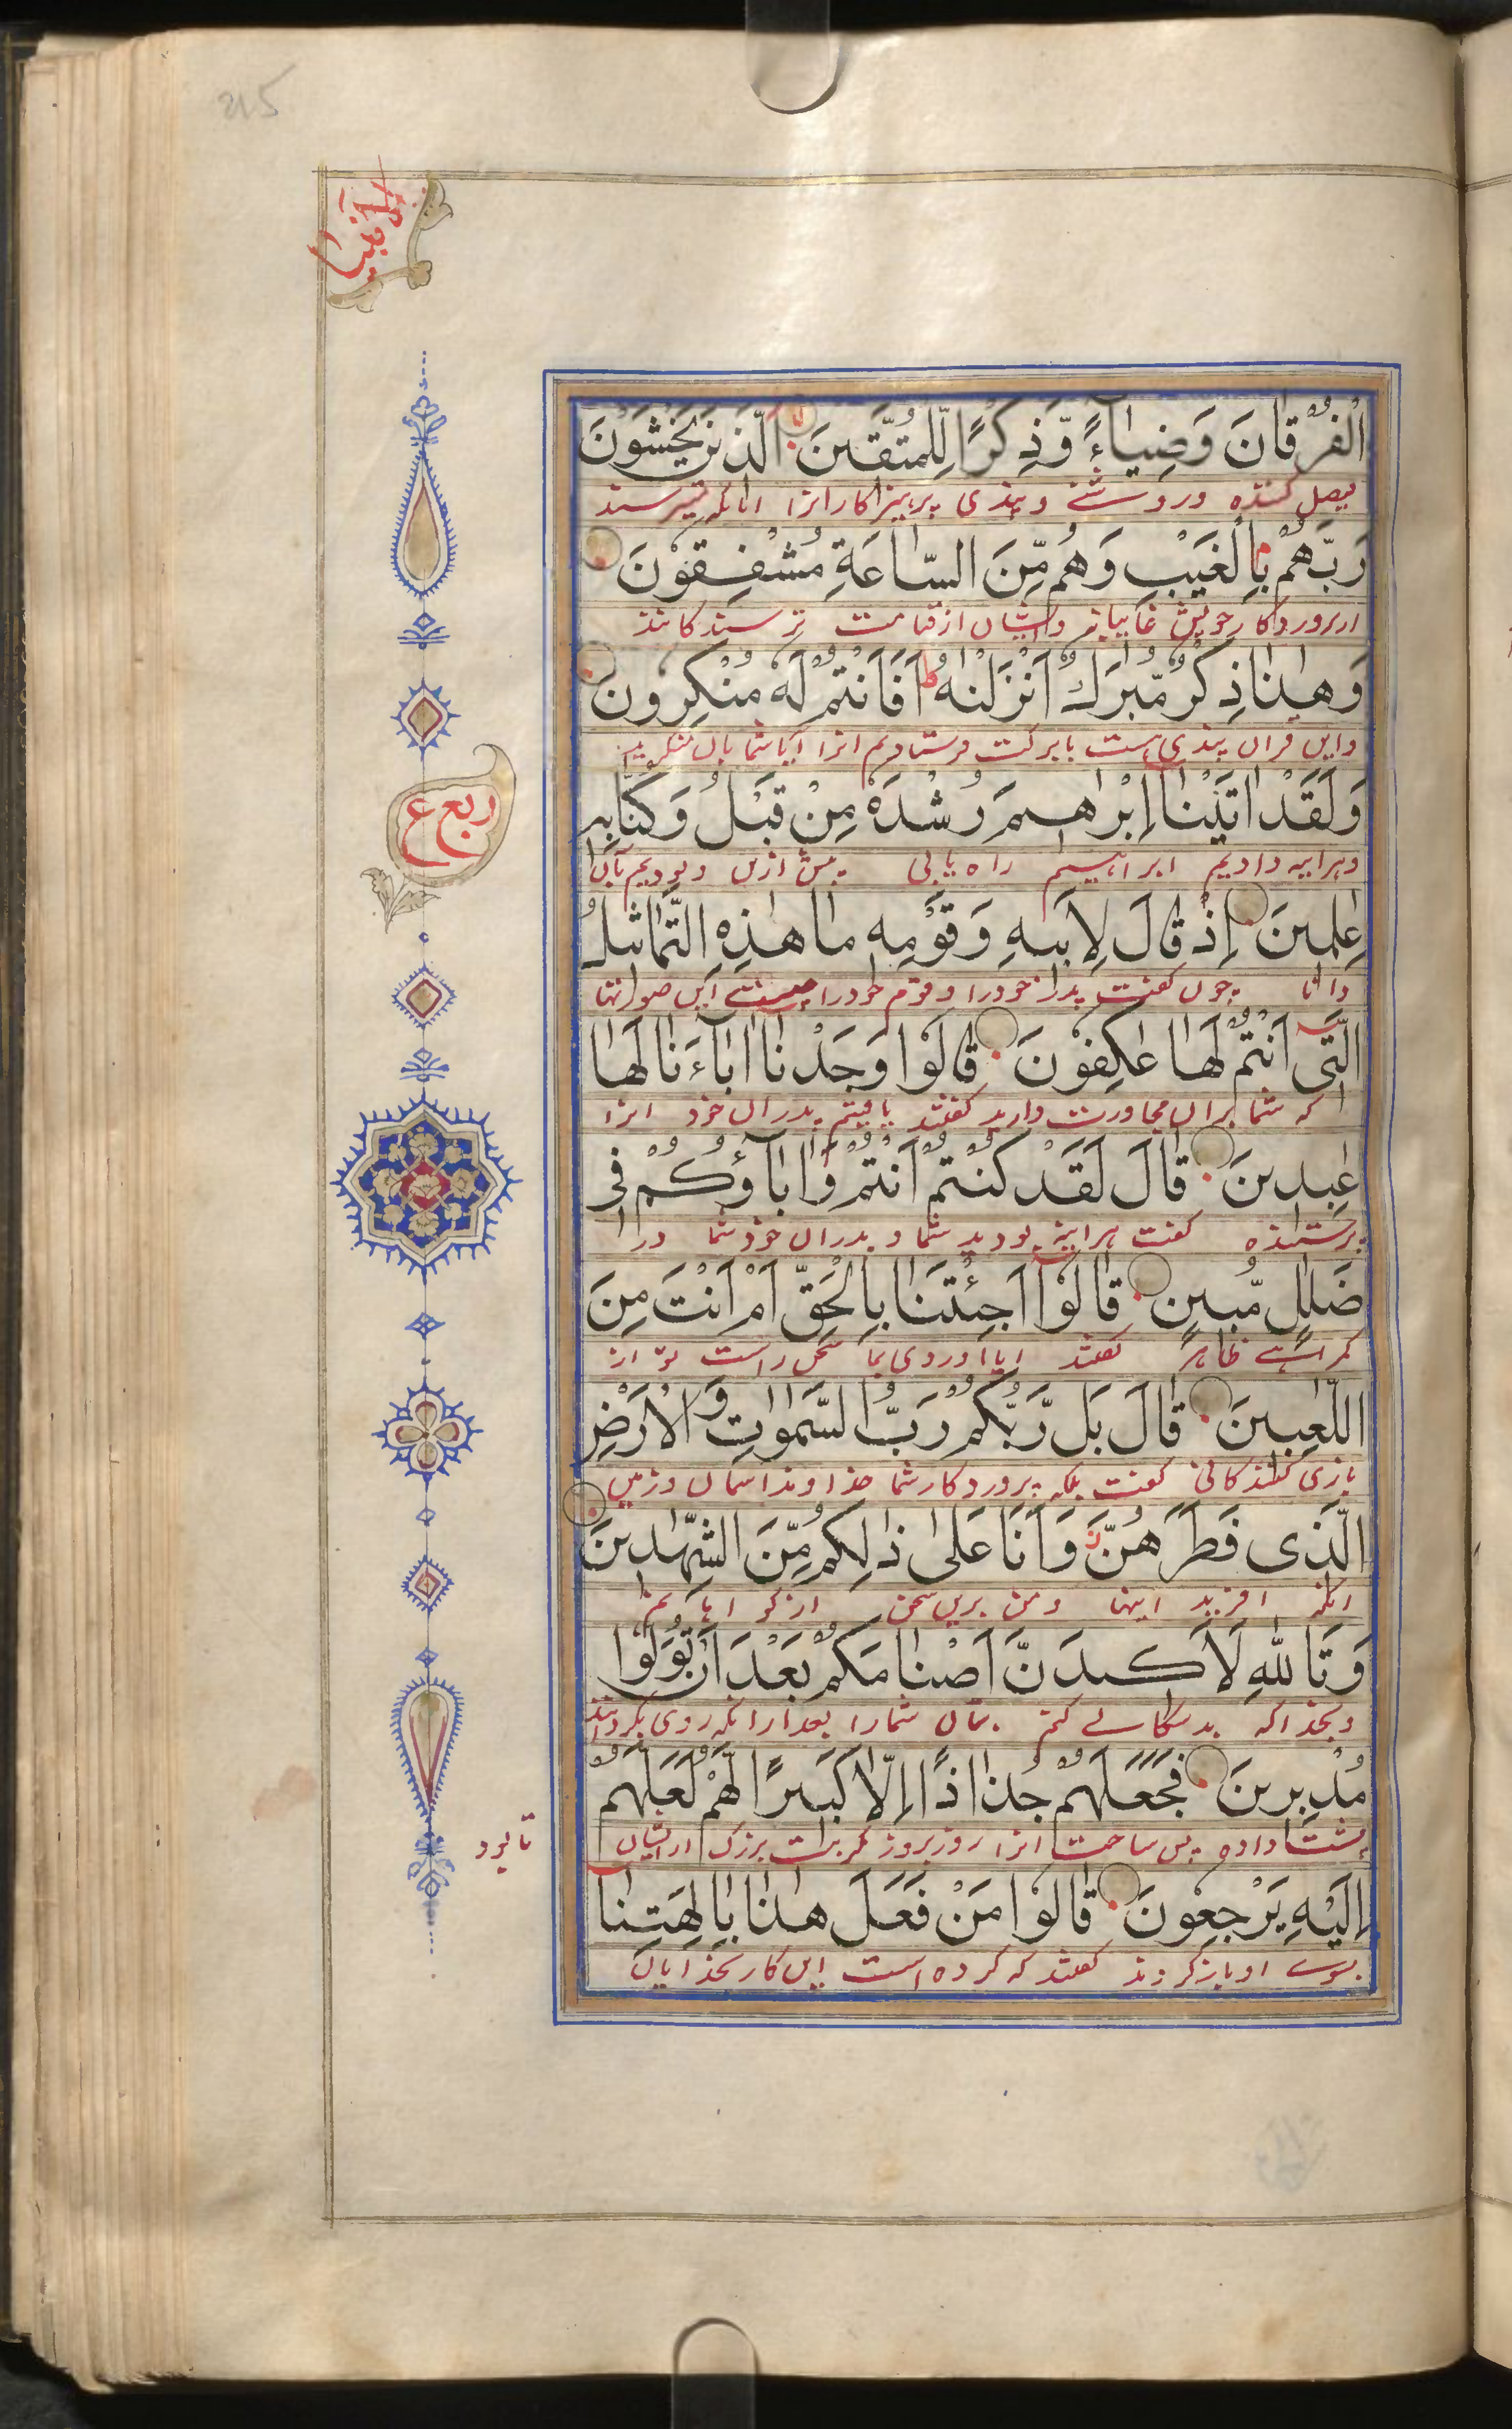 215
الانبیا
الْفُرْقَانَ وَضِيَاءً وَّذِكْرًا لِّلْمُتَّقِينَ الَّذِينَ يَخْشَوْنَ
فیصل کننده و روشنے و پندی پرهیزکارانرا انانکه میترسند
رَبَّهُمْ بِالْغَيْبِ وَهُمْ مِّنَ السَّاعَةِ مُشْفِقُوْنَ
از پروردکار خویش غایبانه و ایشان از قیامت ترسندکانند
وَهٰذَا ذِكْرٌ مُّبٰرَكٌ اَنْزَلْنٰهُ ط اَفَاَنْتُمْ لَهٗ مُنْكِرُونَ
و این قران پندی هست بابرکت فرستادیم انرا ایا شما بان منکرید
ربع ع
وَلَقَدْ اٰتَيْنَا اِبْرٰهِيمَ رُشْدَهٗ مِنْ قَبْلُ وَكُنَّا بِهٖ
و هراینه دادیم ابراهیم راه یابی پیش ازین و بودیم بآن
عٰلِمِينَ اِذْ قَالَ لِاَبِيهِ وَقَوْمِهٖ مَا هٰذِهِ التَّمَاثِيلُ
دانا چون کفت پدر خودرا و قوم خودرا چیست این صورتها
الَّتِى اَنْتُمْ لَهَا عٰكِفُوْنَ قَالُوْا وَجَدْنَا اٰبَاۤءَنَا لَهَا
که شما بران مجاورت دارید کفتند یافتیم پدران خود انرا
عٰبِدِينَ قَالَ لَقَدْ كُنْتُمْ اَنْتُمْ وَاٰبَاۤؤُكُمْ فِى
پرستنده کفت هراینه بودید شما و پدران خود شما در
ضَلٰلٍ مُّبِينٍ قَالُوْا اَجِئْتَنَا بِالْحَقِّ اَمْ اَنْتَ مِنَ
کمراهے ظاهر کفتند ایا اوردی بما سخن راست تو از
اللّٰعِبِينَ قَالَ بَل رَّبُّكُمْ رَبُّ السَّمٰوٰتِ وَالْاَرْضِ
بازی کنندکانی کفت بلکه پروردکار شما خداوند اسمان و زمین
الَّذِى فَطَرَهُنَّ وَاَنَا عَلٰى ذٰلِكُمْ مِّنَ الشّٰهِدِينَ
انکه افرید اینها و من برین سخن از کواهانم
وَتَاللّٰهِ لَاَكِيدَنَّ اَصْنَامَكُمْ بَعْدَ اَنْ تُوَلُّوْا
و بخدا که بدسکالے کنم بتان شمارا بعد ازانکه روی بکردانید
مُدْبِرِينَ فَجَعَلَهُمْ جُذَاذًا اِلَّا كَبِيرًا لَّهُمْ لَعَلَّهُمْ
پشت داده پس ساخت انرا ریز ریز مکر بت بزرک ازیشان
تا بود
اِلَيْهِ يَرْجِعُوْنَ قَالُوْا مَنْ فَعَلَ هٰذَا بِاٰلِهَتِنَا
بسوے او بازکردند کفتند که کرده است این کار بخدایان